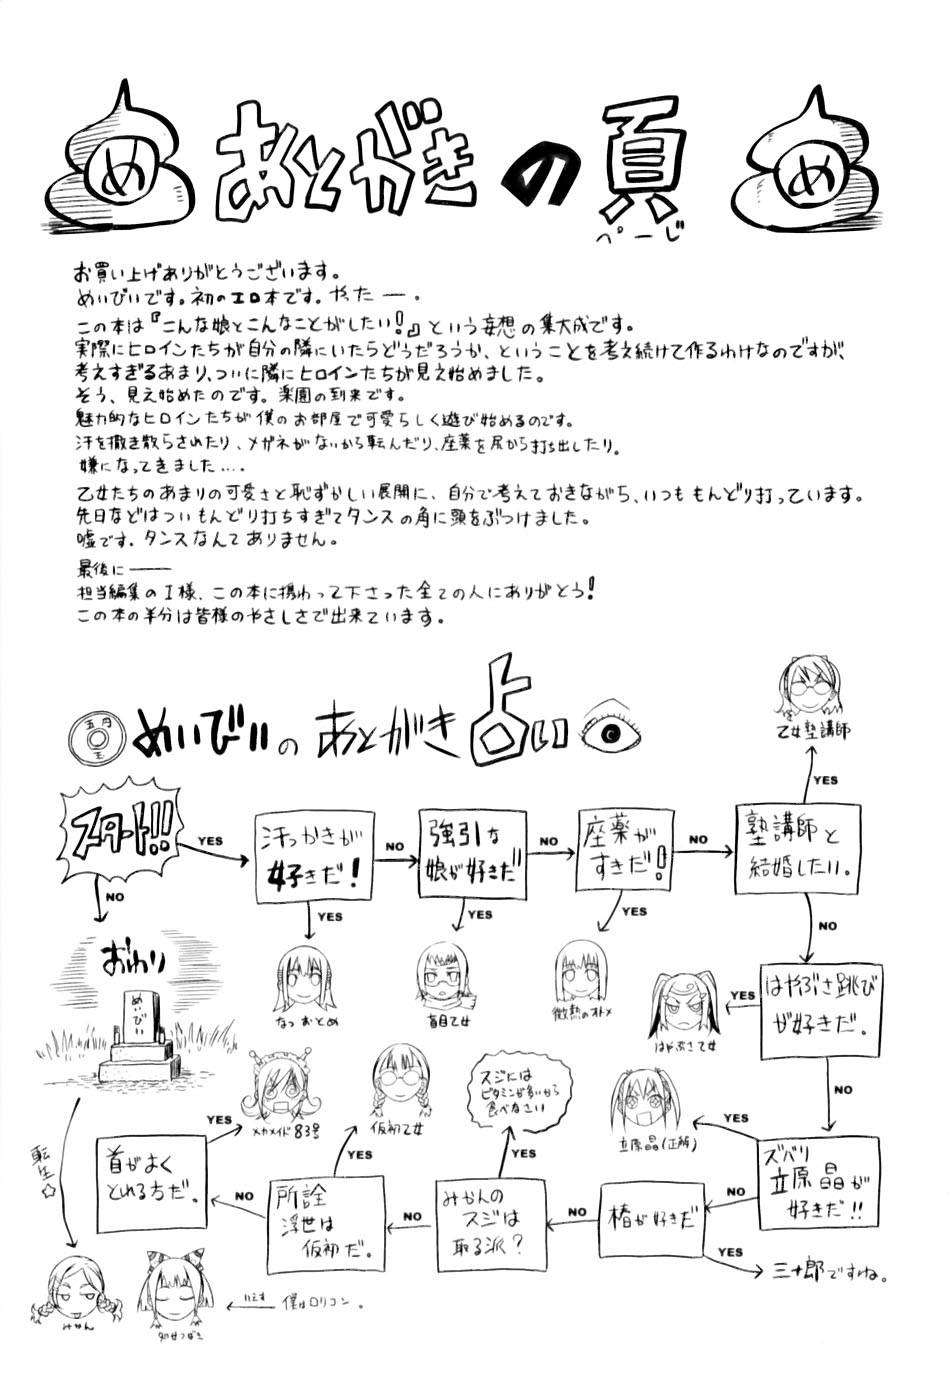 め
あとがきの頁
ぺーじ
め
お買い上げありがとうございます。
めいびいです。初のエロ本です。やったー。
この本は『こんな娘とこんなことがしたい!』という妄想の集大成です。
実際にヒロインたちが自分の隣にいたらどうだろうか、ということを考え続けて作るわけなのですが、
考えすぎるあまり、ついに隣にヒロインたちが見え始めました。
そう、見え始めたのです。楽園の到来です。
魅力的なヒロインたちが僕のお部屋で可愛らしく遊び始めるのです。
汗を撒き散らされたり、メガネがないから転んだり、座薬を尻から打ち出したり。
嫌になってきました....
乙女たちのあまりの可愛さと恥ずかしい展開に、自分で考えておきながら、いつももんどり打っています。
先日などはついもんどり打ちすぎてタンスの角に頭をぶつけました。
嘘です。タンスなんてありません。
最後に――
担当編集のI様、この本に携わって下さった全ての人にありがとう!
この本の半分は皆様のやさしさで出来ています。
五円
玉
めいびいのあとがき占い
乙女塾講師
YES
スタート!!
YES
汗っかきが
好きだ!
NO
強引な
娘が好きだ
NO
座薬が
すきだ!
NO
塾講師と
結婚したい。
NO
YES
YES
YES
NO
おわり
めいびい
なつおとめ
盲目乙女
微熱のオトメ
はやぶさ乙女
YES
はやぶさ跳び
が好きだ。
NO
メカメイド83号
仮初乙女
スジには
ビタミンが多いから
食べなさい
立原晶(正解)
YES
ズバリ
立原晶が
好きだ!!
NO
椿が好きだ
YES
三十郎ですね。
NO
みかんの
スジは
取る派?
YES
NO
所詮
浮世は
仮初だ。
YES
NO
首がよく
とれる方だ。
YES
転生☆
みかん
処女つばき
いえす
僕はロリコン。